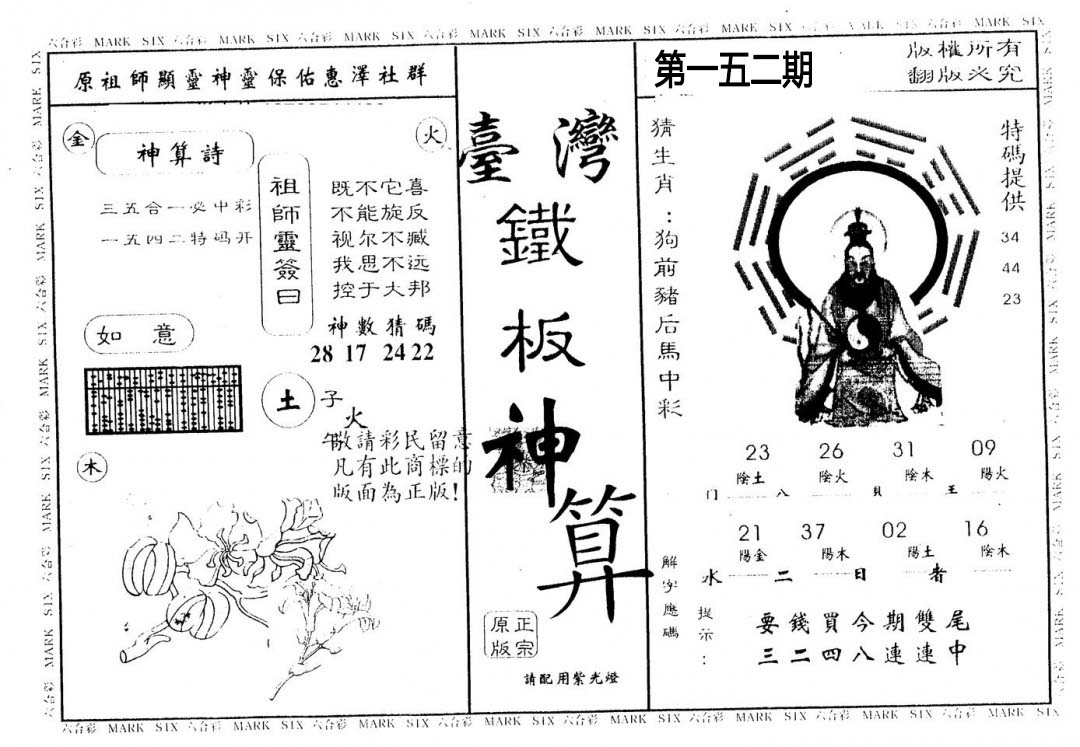 六合彩 MARK SIX 六合彩 MARK SIX 六合彩 MARK SIX 六合彩 MARK SIX 六合彩 MARK SIX 六合彩 MARK SIX
原祖師顯靈神靈保佑惠澤社群
金
火
神算詩
三五合一必中彩
一五四二特码开
祖師靈簽曰
既不它喜
不能旋反
视尔不臧
我思不远
控于大邦
神數猜碼
28 17 24 22
如意
土
子
火
木
敬請彩民留意
凡有此商標的
版面為正版!
臺灣
鐵
板
神
算
正宗
原版
請配用紫光燈
第一五二期
版權所有
翻版必究
猜生肖:狗前豬后馬中彩
特碼提供
34
44
23
23 26 31 09
陰土 陰火 陰木 陽火
门 八 貝 王
21 37 02 16
陽金 陽木 陽土 陰木
水 二 日 者
解字應碼
提示:
要錢買今期雙尾
三二四八連連中
六合彩 MARK SIX 六合彩 MARK SIX 六合彩 MARK SIX 六合彩 MARK SIX 六合彩 MARK SIX 六合彩 MARK SIX